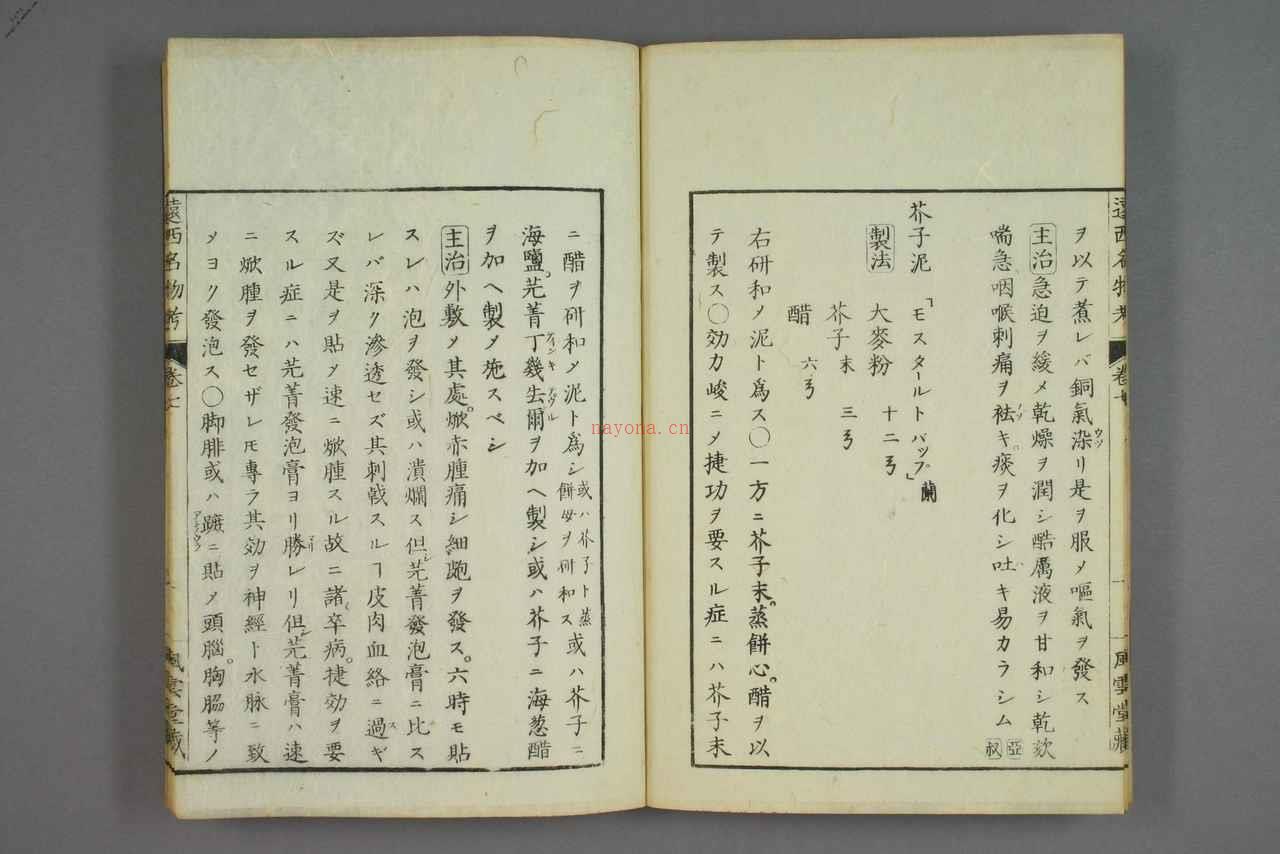 遠西名物考 卷七 一 風雲堂藏
ヲ以テ煮レバ銅氣染リ是ヲ服メ嘔氣ヲ發ス
主治急迫ヲ緩メ乾燥ヲ潤シ酷厲液ヲ甘和シ乾欬
喘急咽喉刺痛ヲ袪キ痰ヲ化シ吐キ易カラシム 亞 叔
芥子泥 「モスタールトパップ」蘭
製法 大麥粉 十二弓
芥子末 三弓
醋 六弓
右研和メ泥ト爲ス〇一方ニ芥子末。蒸餅心。醋ヲ以
テ製ス〇効力峻ニメ捷功ヲ要スル症ニハ芥子末
ニ醋ヲ研和メ泥ト爲シ或ハ芥子ト蒸餅母ヲ研和ス或ハ芥子ニ
海鹽。芫菁丁幾生爾ヲ加ヘ製シ或ハ芥子ニ海葱醋
ヲ加ヘ製メ施スベシ
主治外敷メ其處焮赤腫痛シ細皰ヲ發ス。六時モ貼
スレハ泡ヲ發シ或ハ潰爛ス但シ芫菁發泡膏ニ比ス
レバ深ク滲透セズ其刺戟スルヿ皮肉血絡ニ過ギ
ズ又是ヲ貼メ速ニ焮腫スル故ニ諸卒病。捷効ヲ要
スル症ニハ芫菁發泡膏ヨリ勝レリ但シ芫菁膏ハ速
ニ焮腫ヲ發セザレモ專ラ其効ヲ神經ト水脉ニ致
メヨク發泡ス〇脚腓或ハ蹠ニ貼メ頭腦。胸脇等ノ
遠西名物考 卷七 風雲堂藏
nayona.cn